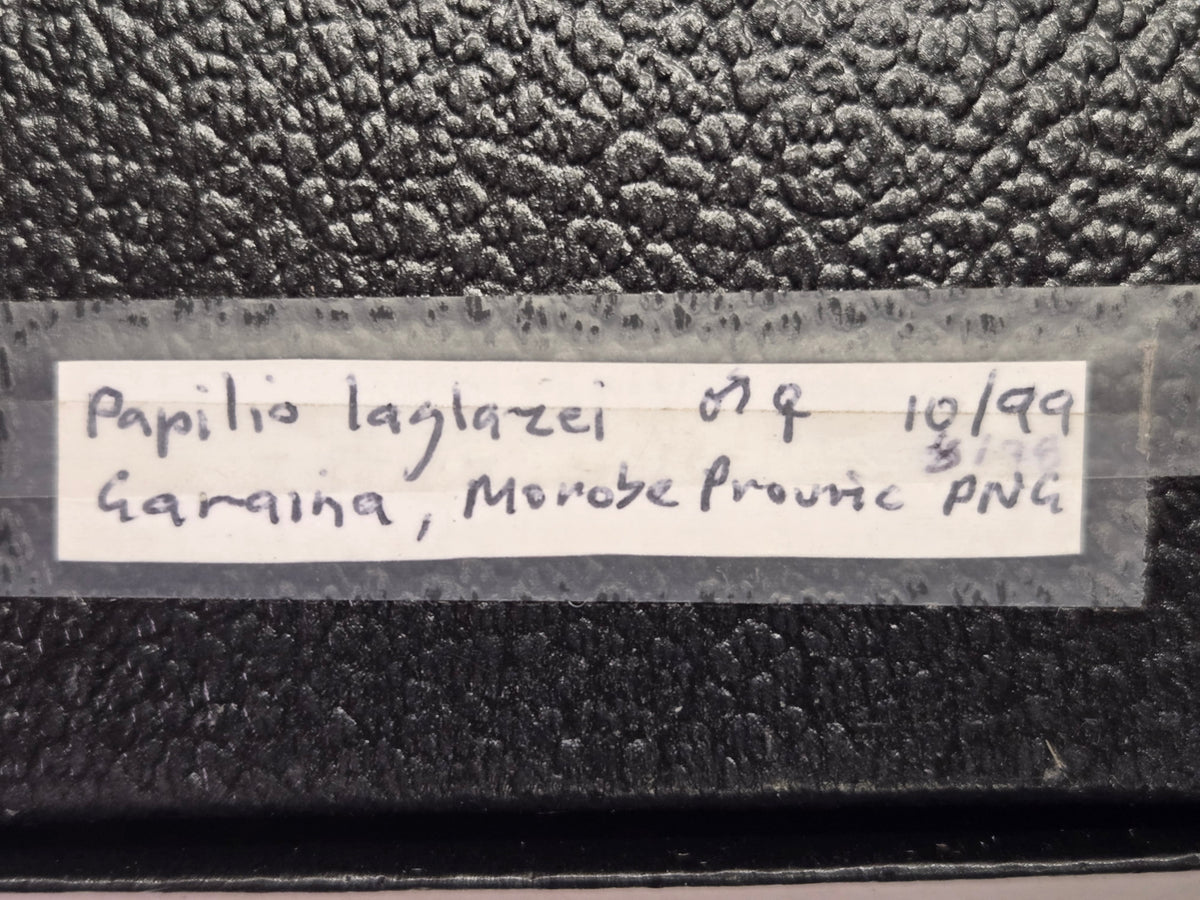 Papilio laglazei ♂ ♀ 10/99
Garaina, Morobe Provinc PNG